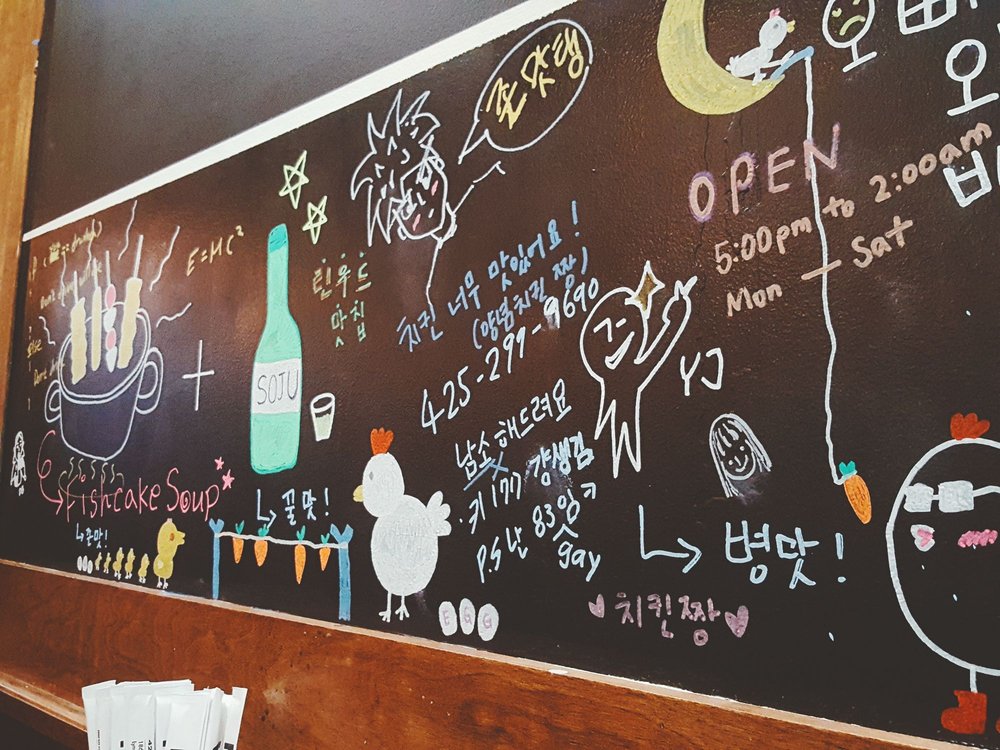 존맛탱
E=MC²
+
SOJU
린우드
맛집
치킨 너무 맛있어요!
(양념치킨 짱)
425-299-9690
남소해드려요
키 177 걍생김
P.S 난 83임ㅋ
gay
YJ
OPEN
5:00pm to 2:00am
Mon - Sat
Fishcake Soup
꿀맛!
꿀맛!
EGG
병맛!
치킨짱